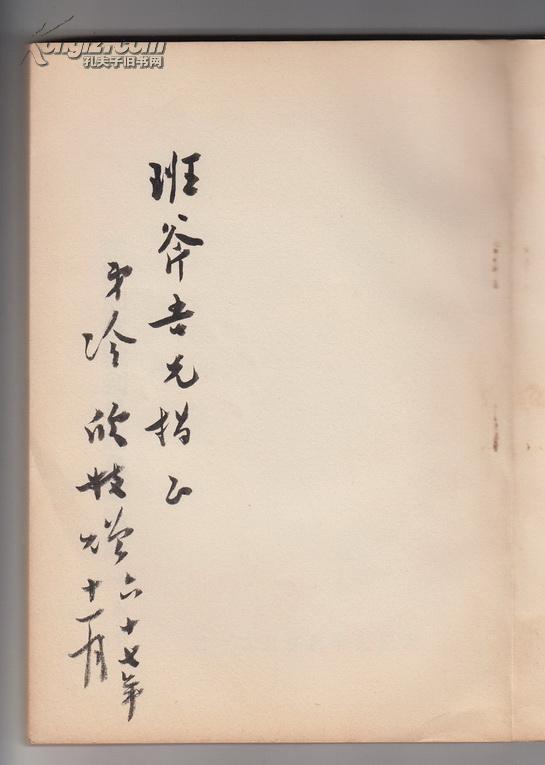 Kongfz.com
孔夫子旧书网
班斧吾兄指正
弟冷欣敬贈
六十七年
十一月